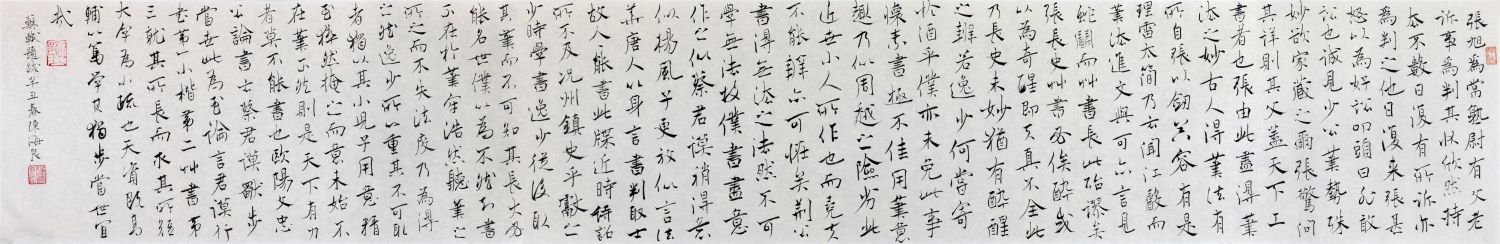 張旭為常熟尉有父老
訴事為判其狀欣然持
去不數日復有所訴亦
為判之他日復來張甚
怒以為好訟叩頭曰非敢
訟也誠見少公筆勢殊
妙欲家藏之爾張驚問
其詳則其父蓋天下工
書者也張由此盡得筆
法之妙古人得筆法有
所自張以劍器容有是
理雷太簡乃云聞江聲而
筆法進文與可亦言見
蛇鬭而艸書長此殆謬矣
張長史艸書必俟醉或
以為奇醒即天真不全此
乃長史未妙猶有醉醒
之辨若逸少何嘗寄
於酒乎僕亦未免此事
懷素書極不佳用筆意
趣乃似周越之險劣此
近世小人所作也而堯夫
不能辨亦可怪矣荆公
書得無法之法然不可
學無法故僕書盡意
作之似蔡君謨稍得意
似楊風子更放似言法
華唐人以身言書判取士
故人人能書此牒近時待詔
所不及況州鎮史乎獻之
少時學書逸少從後取
其筆而不可知其長大必
能名世僕以為不然知書
不在於筆牢浩然聽筆之
所之而不失法度乃為得
之然逸少所以重其不可取
者獨以其小兒子用意精
至猝然掩之而意未始不
在筆不然則是天下有力
者莫不能書也歐陽文忠
公論書云蔡君謨獨步
當世此為至論言君謨行
書第一小楷第二艸書第
三就其所長而求其所短
大字為小疏也天資既高
輔以篤學其獨步當世宜
哉
蘇軾題跋辛丑春陳海良